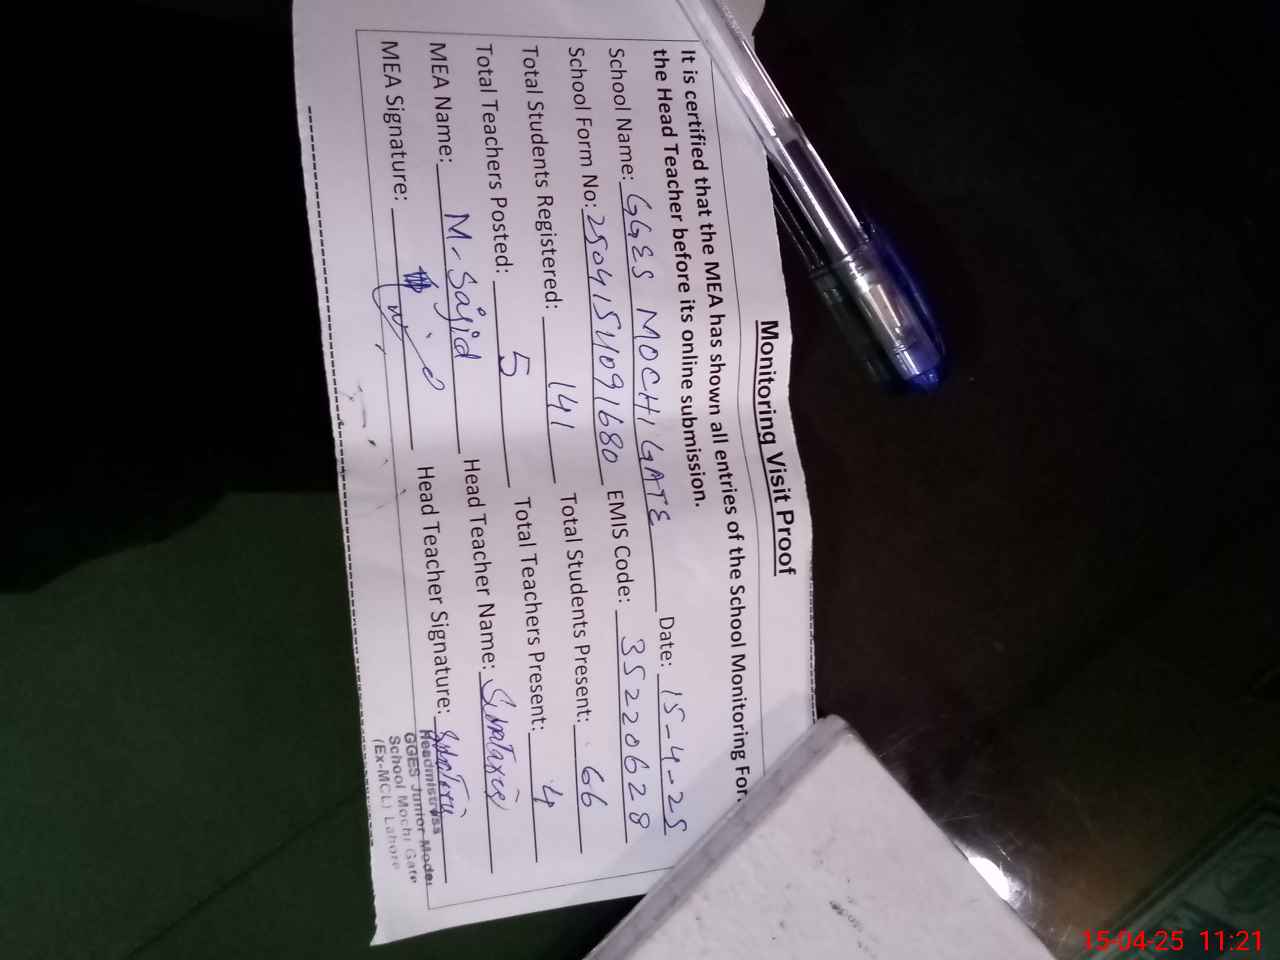 Monitoring Visit Proof
It is certified that the MEA has shown all entries of the School Monitoring For
the Head Teacher before its online submission.
School Name: GGES MOCHI GATE Date: 15-4-25
School Form No: 2504154091680 EMIS Code: 35220628
Total Students Registered: 141 Total Students Present: 66
Total Teachers Posted: 5 Total Teachers Present: 4
MEA Name: M. Sajid Head Teacher Name:
MEA Signature: Head Teacher Signature:
Headmistress
GGES Junior Model
School Mochi Gate
(Ex-MCL) Lahore
15-04-25 11:21